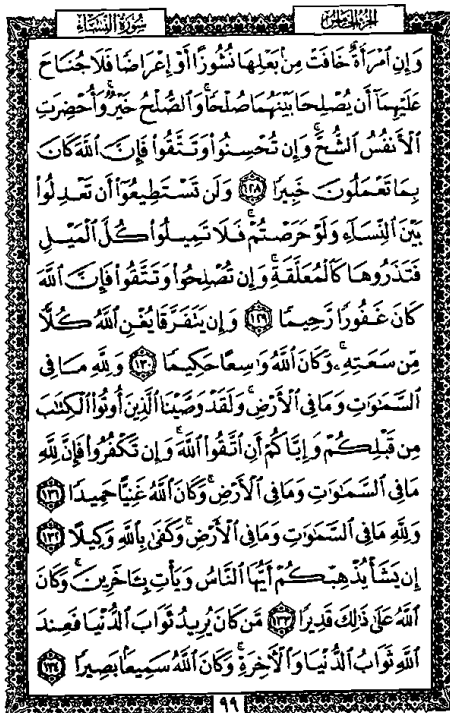 الجزء الخامس سورة النساء
وَإِنِ ٱمْرَأَةٌ خَافَتْ مِنۢ بَعْلِهَا نُشُوزًا أَوْ إِعْرَاضًا فَلَا جُنَاحَ
عَلَيْهِمَآ أَن يُصْلِحَا بَيْنَهُمَا صُلْحًا ۚ وَٱلصُّلْحُ خَيْرٌ ۗ وَأُحْضِرَتِ
ٱلْأَنفُسُ ٱلشُّحَّ ۚ وَإِن تُحْسِنُوا۟ وَتَتَّقُوا۟ فَإِنَّ ٱللَّهَ كَانَ
بِمَا تَعْمَلُونَ خَبِيرًا ١٢٨ وَلَن تَسْتَطِيعُوٓا۟ أَن تَعْدِلُوا۟
بَيْنَ ٱلنِّسَآءِ وَلَوْ حَرَصْتُمْ ۖ فَلَا تَمِيلُوا۟ كُلَّ ٱلْمَيْلِ
فَتَذَرُوهَا كَٱلْمُعَلَّقَةِ ۚ وَإِن تُصْلِحُوا۟ وَتَتَّقُوا۟ فَإِنَّ ٱللَّهَ
كَانَ غَفُورًا رَّحِيمًا ١٢٩ وَإِن يَتَفَرَّقَا يُغْنِ ٱللَّهُ كُلًّا
مِّن سَعَتِهِۦ ۚ وَكَانَ ٱللَّهُ وَٰسِعًا حَكِيمًا ١٣٠ وَلِلَّهِ مَا فِى
ٱلسَّمَٰوَٰتِ وَمَا فِى ٱلْأَرْضِ ۗ وَلَقَدْ وَصَّيْنَا ٱلَّذِينَ أُوتُوا۟ ٱلْكِتَٰبَ
مِن قَبْلِكُمْ وَإِيَّاكُمْ أَنِ ٱتَّقُوا۟ ٱللَّهَ ۚ وَإِن تَكْفُرُوا۟ فَإِنَّ لِلَّهِ
مَا فِى ٱلسَّمَٰوَٰتِ وَمَا فِى ٱلْأَرْضِ ۚ وَكَانَ ٱللَّهُ غَنِيًّا حَمِيدًا ١٣١
وَلِلَّهِ مَا فِى ٱلسَّمَٰوَٰتِ وَمَا فِى ٱلْأَرْضِ ۚ وَكَفَىٰ بِٱللَّهِ وَكِيلًا ١٣٢
إِن يَشَأْ يُذْهِبْكُمْ أَيُّهَا ٱلنَّاسُ وَيَأْتِ بِـَٔاخَرِينَ ۚ وَكَانَ
ٱللَّهُ عَلَىٰ ذَٰلِكَ قَدِيرًا ١٣٣ مَّن كَانَ يُرِيدُ ثَوَابَ ٱلدُّنْيَا فَعِندَ
ٱللَّهِ ثَوَابُ ٱلدُّنْيَا وَٱلْءَاخِرَةِ ۚ وَكَانَ ٱللَّهُ سَمِيعًۢا بَصِيرًا ١٣٤
٩٩